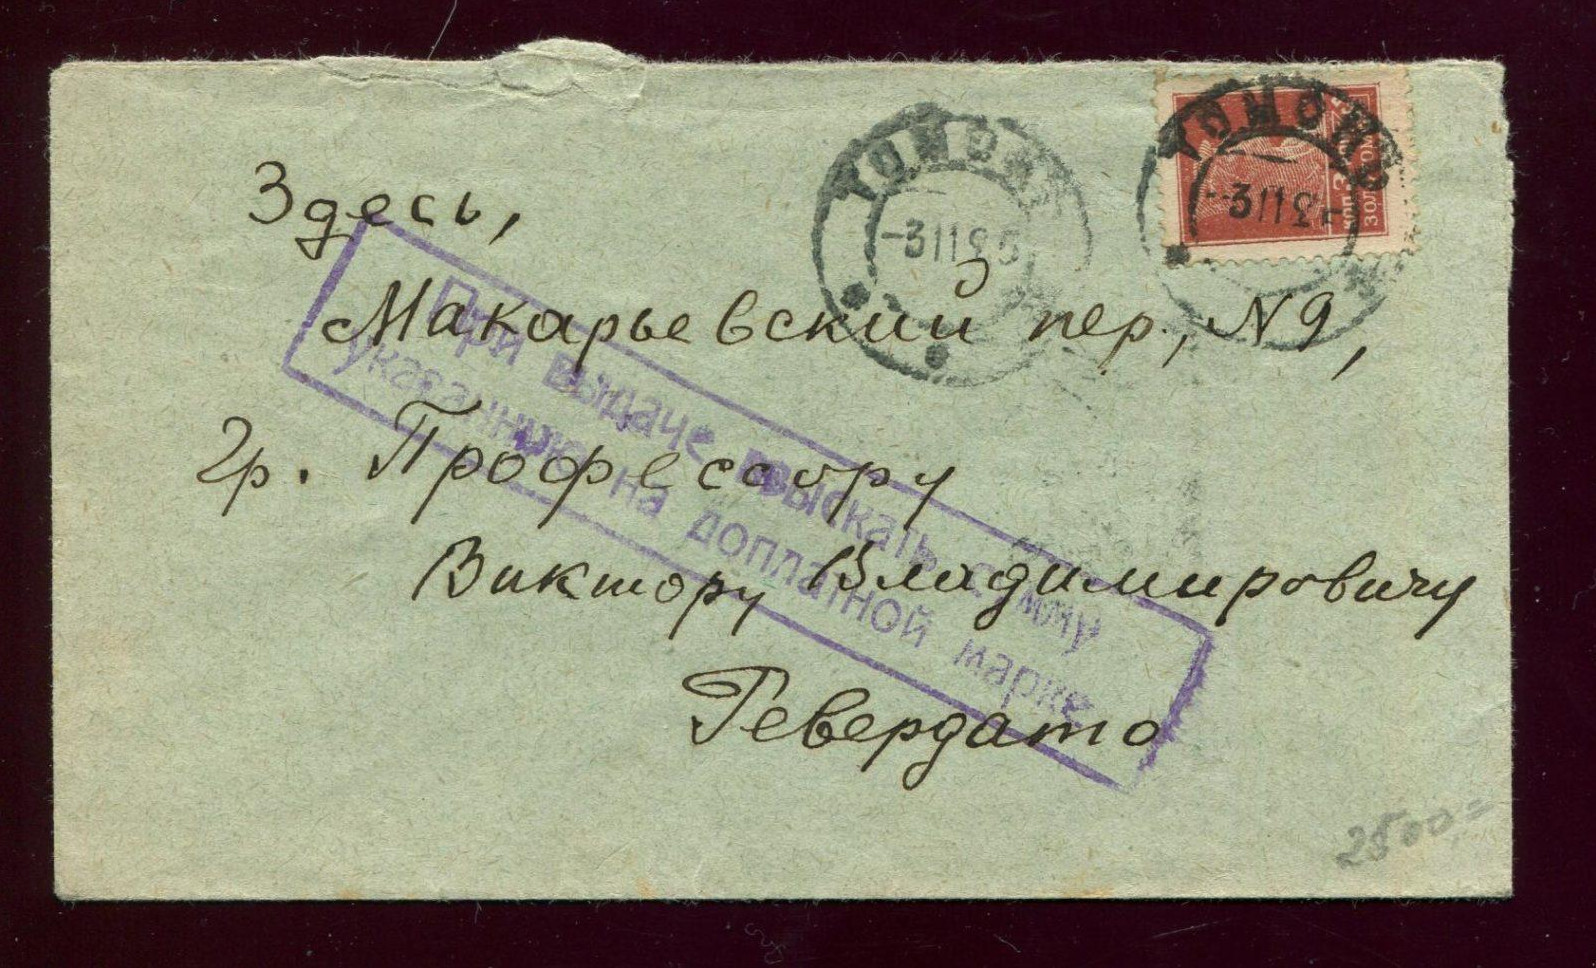 Здесь,
Макарьевский пер., N 9,
Гр. Профессору
Виктору Владимировичу
Ревердатто
При выдаче взыскать сумму
указанную на доплатной марке
ТОМСК
-3 11 25
ТОМСК
-3 11 2
КОП. 3 КОП.
ЗОЛОТОМ
2500=